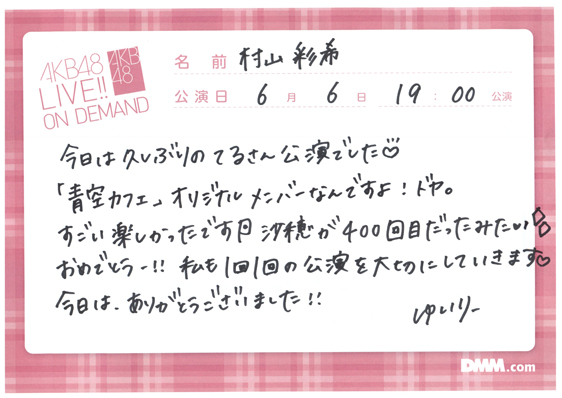 AKB48
LIVE!!
ON DEMAND
AKB
48
名前 村山彩希
公演日 6月6日 19:00 公演
今日は久しぶりのてるさん公演でした♡
「青空カフェ」オリジナルメンバーなんですよ!ドヤ。
すごい楽しかったです 沙穂が400回目だったみたい
おめでとうー!! 私も1回1回の公演を大切にしていきます♡
今日は、ありがとうございました!!
ゆいりー
DMM.com